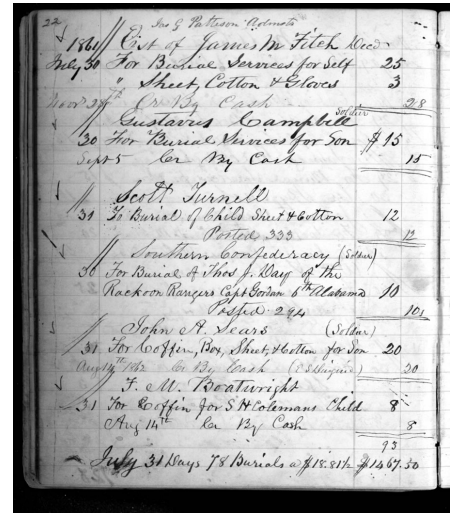 22 Jas G Patteson Admstr
1861 Est of James M Fitch Decd
July 30 For Burial Services for Self 25
" Sheet, Cotton & Gloves 3
Novr 27th Cr By Cash 28
Gustavus Campbell Soldier
30 For Burial Services for Son $15
Sept 5 Cr By Cash 15
Scott Turnell
31 To Burial of Child Sheet & Cotton 12
Posted 333 12
Southern Confederacy (Soldier)
30 For Burial of Thos J. Day of the
Rackoon Rangers Capt Gordan 6th Alabama 10
Posted 294 10
John A. Sears (Soldier)
31 For Coffin, Box, Sheet, & Cotton for Son 20
Aug 14th 1862 Cr By Cash 20
F. M. Boatwright
31 For Coffin for S H Colemans Child 8
Aug 14th Cr By Cash 8
93
July 31 Days 78 Burials a $18.81½ $1467.50